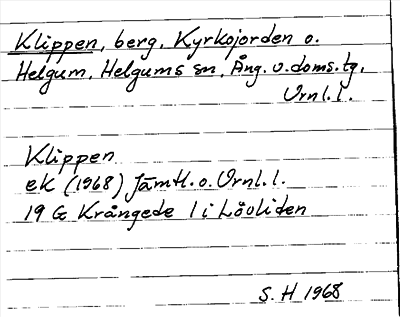 Klippen, berg, Kyrkojorden o.
Helgum, Helgums sn, Ång. v. doms. tg,
Vrnl. l.
Klippen
ek (1968) Jämtl. o. Vrnl. l.
19 G Krångede 1 i Lövliden
S. H 1968